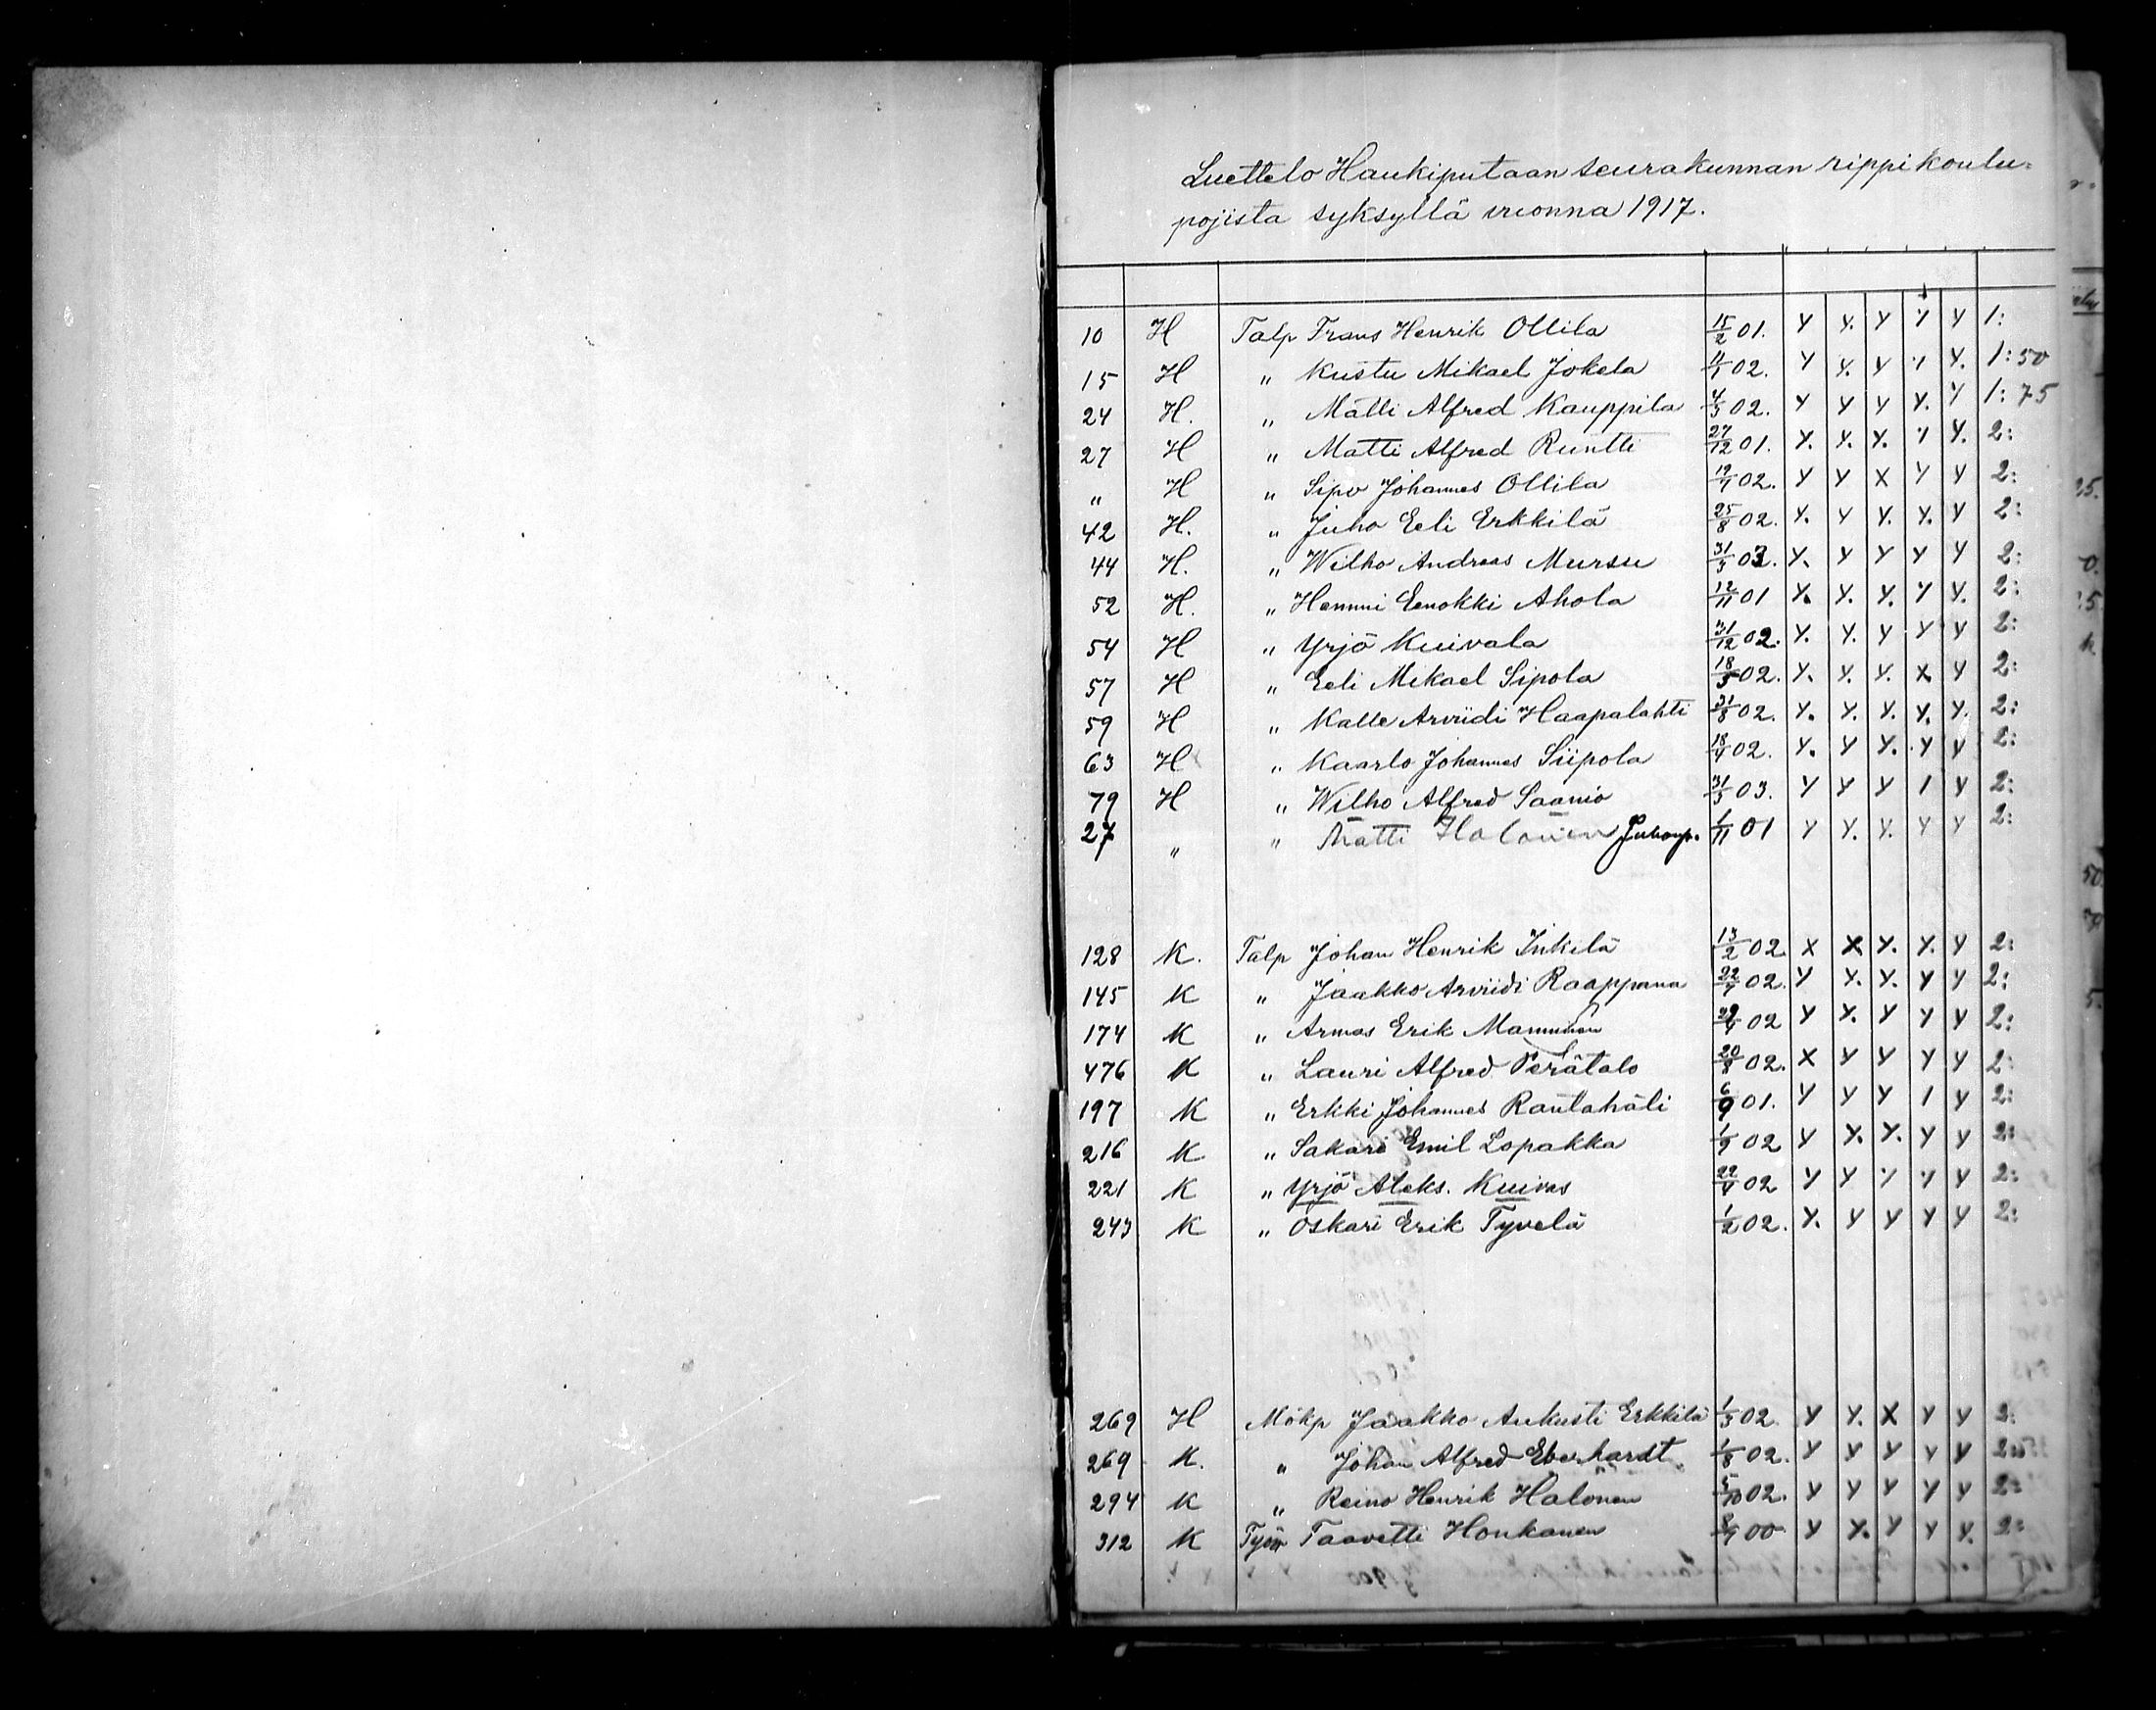 Luettelo Haukiputaan seurakunnan rippikoulu=
pojista syksyllä vuonna 1917.
10 H Talp Frans Henrik Ollila 15/2 01. y y. y y y 1:
15 H " Kustu Mikael Jokela 02. y y. y y y. 1:50
24 H. " Matti Alfred Kauppila 4/5 02. y y y y. y 1:75
27 H " Matti Alfred Runtti 27/12 01. y. y. y. y y. 2:
" H " Sipo Johannes Ollila 02. y y x y y 2:
42 H. " Juho Eeli Erkkilä 25/8 02. y. y y. y. y 2:
44 H. " Wilho Andreas Mursu 31/3 03. y. y y y y 2:
52 H. " Hemmi Eenokki Ahola 12/11 01 y. y. y. y y. 2:
54 H " Yrjö Kuivala 31/12 02. y. y. y y y 2:
57 H " Eeli Mikael Sipola 18/5 02. y. y. y. x y 2:
59 H " Kalle Arviidi Haapalahti 31/8 02. y. y. y. y. y. 2:
63 H " Kaarlo Johannes Siipola 02. y. y y. y y 2:
79 H " Wilho Alfred Saanio 31/3 03. y y y 1 y 2:
27 " " Matti Halonen Juhonp. 1/11 01 y y. y. y y 2:
128 K. Talp Johan Henrik Inkilä 13/2 02 x x y. y. y 2:
145 K " Jaakko Arviidi Raappana 02. y y. y. y y 2:
174 K " Armas Erik Manninen 02 y y. y y y 2:
476 K " Lauri Alfred Perätalo 20/8 02. x y y y y 2:
197 K " Erkki Johannes Rautahäli 6/9 01. y y y 1 y 2:
216 K " Sakari Emil Lopakka 02 y y. y. y y 2:
221 K " Yrjö Aleks. Kuivas 02 y y y y y 2:
243 K " Oskari Erik Tyvelä 1/2 02. y. y y y y 2:
269 H Mökp Jaakko Aukusti Erkkilä 1/5 02. y y. x y y 2:
269 K. " Johan Alfred Eberhardt 1/8 02. y y y y y
294 K " Reino Henrik Halonen 5/10 02. y y y y y 2:
312 K Taavetti Honkanen 00 y y. y y y. 2: